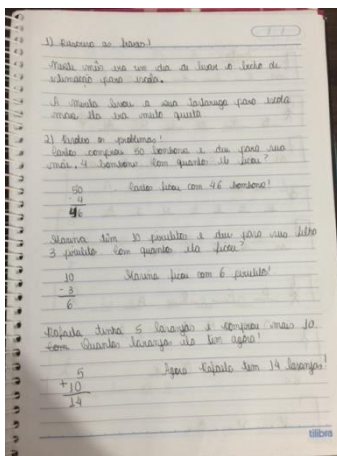 1) Escreva as frases!
Neste mês era um dia de levar o bicho de
estimação para escola.
A Menta levou a sua tartaruga para escola
mais ela era muito quieta
2) Resolva os problemas!
Carlos comprou 50 bombons e deu para sua
mãe. 4 bombons com quantos ele ficou?
50
- 4
46
Carlos ficou com 46 bombons!
Marina têm 10 pirulitos e deu para seu filho
3 pirulitos com quantos ela ficou?
10
- 3
6
Marina ficou com 6 pirulitos!
Rafaela tinha 5 laranjas e comprou mais 10
com Quantas laranjas ela tem agora!
5
+10
14
Agora Rafaela tem 14 laranjas!
tilibra